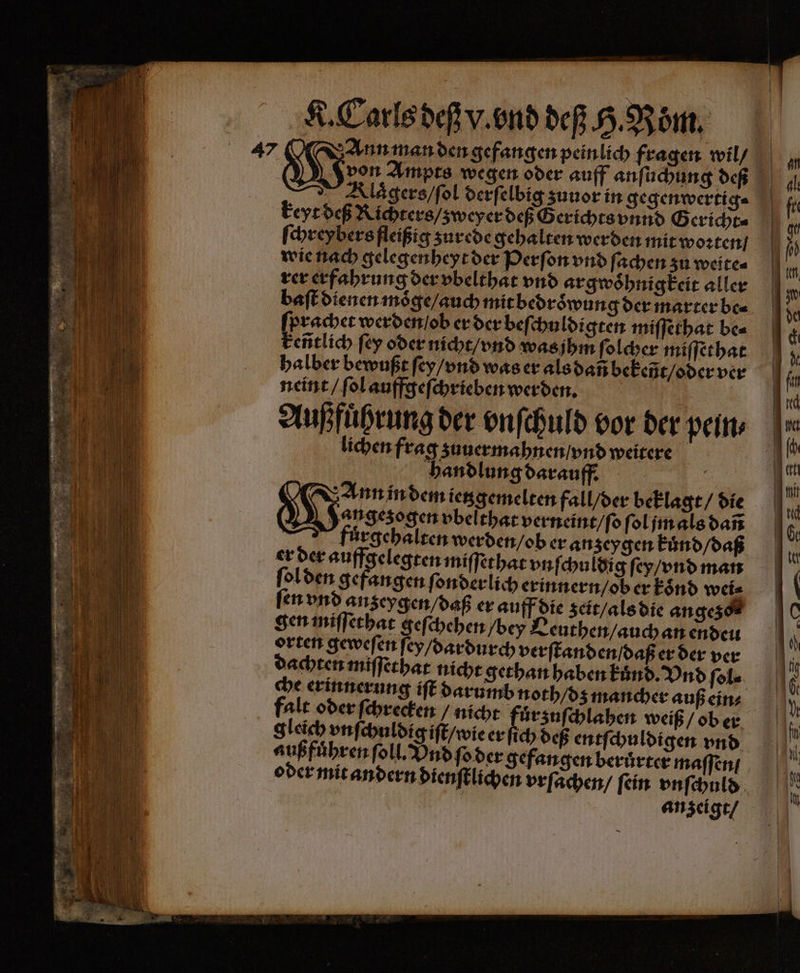 K. Carls deß v. vnd deß H. Röm.
47 WAnn man den gefangen peinlich fragen wil/
von Ampts wegen oder auff anſuchung deß
Klägers/ſol derſelbig zuuor in gegenwertig⸗
keyt deß Richters/zweyer deß Gerichts vnnd Gericht⸗
ſchreybers fleißig zurede gehalten werden mit worten/
wie nach gelegenheyt der Perſon vnd ſachen zu weite⸗
rer erfahrung der vbelthat vnd argwöhnigkeit aller
baſt dienen möge/auch mit bedröwung der marter be⸗
ſprachet werden/ob er der beſchuldigten miſſethat be⸗
keñtlich ſey oder nicht/vnd was jhm ſolcher miſſethat
halber bewußt ſey/vnd was er als dañ bekeñt/oder ver
neint/ſol auffgeſchrieben werden.
Außführung der vnſchuld vor der pein⸗
lichen frag zuuermahnen/vnd weitere
handlung darauff.
WAnn in dem ietzgemelten fall/der beklagt/die
angezogen vbelthat verneint/ſo ſol jm als dañ
fürgehalten werden/ob er anzeygen künd/daß
er der auffgelegten miſſethat vnſchuldig ſey/vnd man
ſol den gefangen ſonderlich erinnern/ob er könd wei⸗
ſen vnd anzeygen/daß er auff die zeit/als die angezo⸗
gen miſſethat geſchehen/bey Leuthen/auch an endeu
orten geweſen ſey/dardurch verſtanden/daß er der ver
dachten miſſethat nicht gethan haben künd. Vnd ſol⸗
che erinnerung iſt darumb noth/dz mancher auß ein⸗
falt oder ſchrecken/nicht fürzuſchlahen weiß/ob er
gleich vnſchuldig iſt/wie er ſich deß entſchuldigen vnd
außführen ſoll. Vnd ſo der gefangen berürter maſſen/
oder mit andern dienſtlichen vrſachen/ſein vnſchuld
anzeigt/